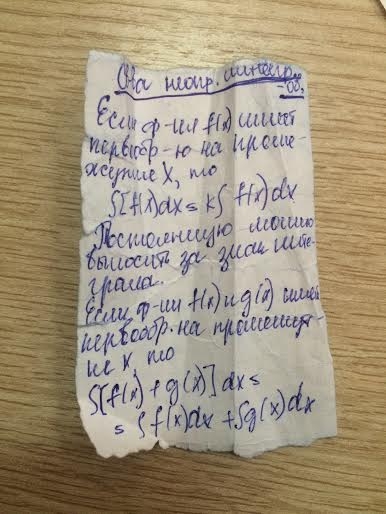 Св-ва неопр. интегр.
-ов.
Если ф-ия f(x) имеет
первообр-ю на проме-
жутке X, то
∫[f(x)dx = k∫ f(x)dx
Постоянную можно
выносить за знак инте-
грала.
Если ф-ии f(x) и g(x) имеют
первообр. на промежут-
ке X, то
∫[f(x) + g(x)] dx =
= ∫ f(x)dx + ∫g(x)dx